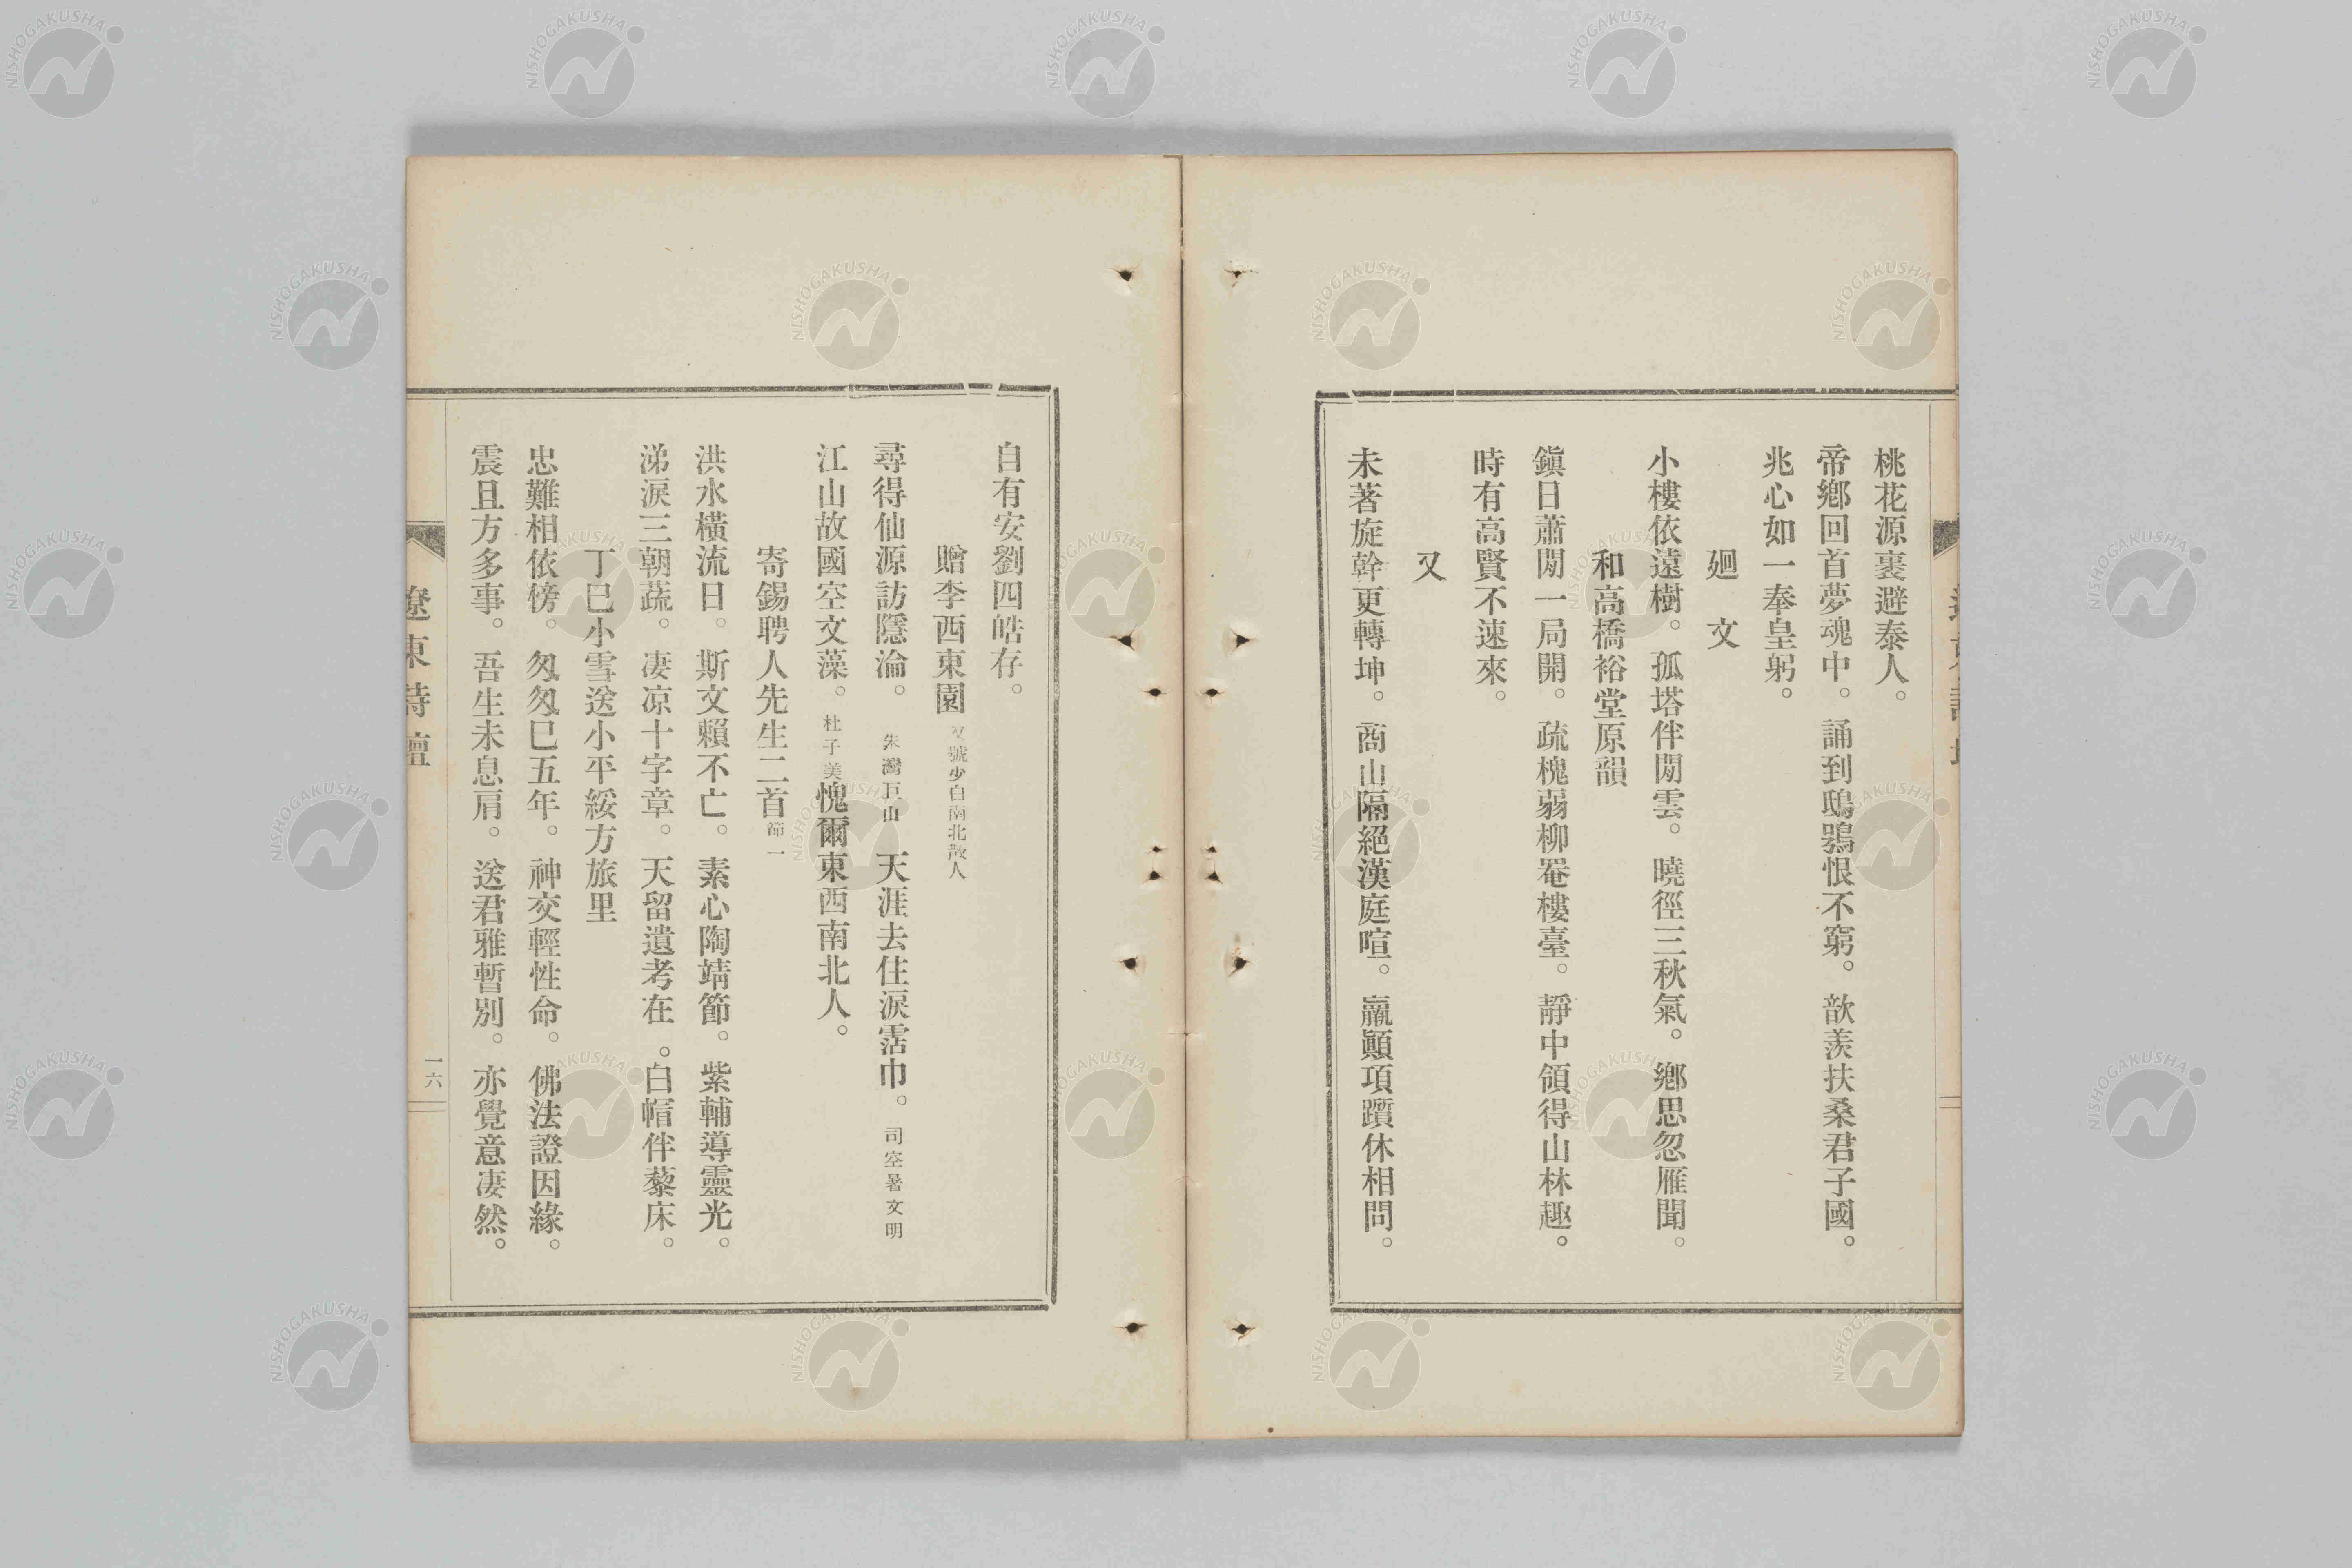 桃花源裏避泰人。
帝鄉回首夢魂中。誦到鴟鴞恨不窮。歆羨扶桑君子國。
兆心如一奉皇躬。
廻文
小樓依遠樹。孤塔伴閒雲。曉徑三秋氣。鄉思忽雁聞。
和高橋裕堂原韻
鎭日蕭閒一局開。疏槐弱柳罨樓臺。靜中領得山林趣。
時有高賢不速來。
又
未著旋幹更轉坤。商山隔絕漢庭喧。羸顚項躓休相問。
自有安劉四皓存。
贈李西東園 又號少白南北散人
尋得仙源訪隱淪。 朱灣巨山 天涯去住淚霑巾。 司空暑文明
江山故國空文藻。 杜子美 愧爾東西南北人。
寄錫聘人先生二首 節一
洪水橫流日。斯文賴不亡。素心陶靖節。紫輔導靈光。
涕淚三朝蔬。凄凉十字章。天留遺考在。白帽伴藜床。
丁巳小雪送小平綏方旅里
忠難相依傍。匆匆巳五年。神交輕性命。佛法證因緣。
震且方多事。吾生未息肩。送君雅暫別。亦覺意凄然。
遼東詩壇
一六
NISHOGAKUSHA